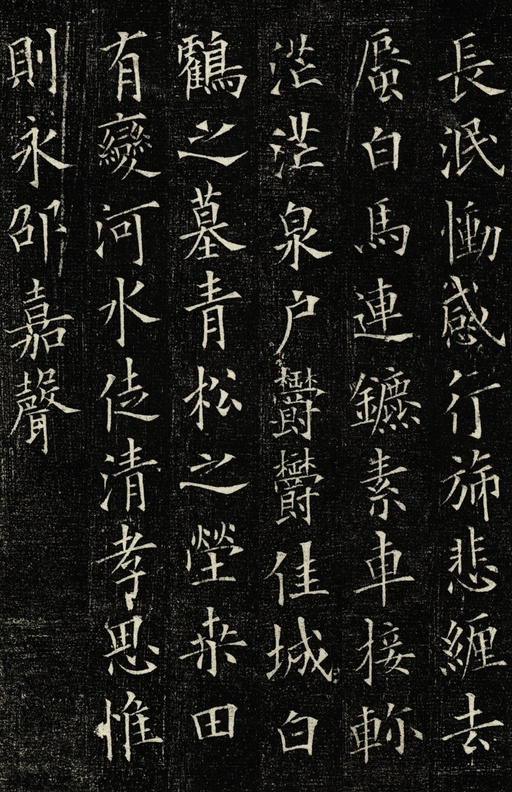 長泯慟感行斾悲纏去
蜃白馬連鑣素車接軫
茫茫泉户欝欝佳城白
鸖之墓青松之塋桒田
有變河水徒清孝思惟
則永邵嘉聲